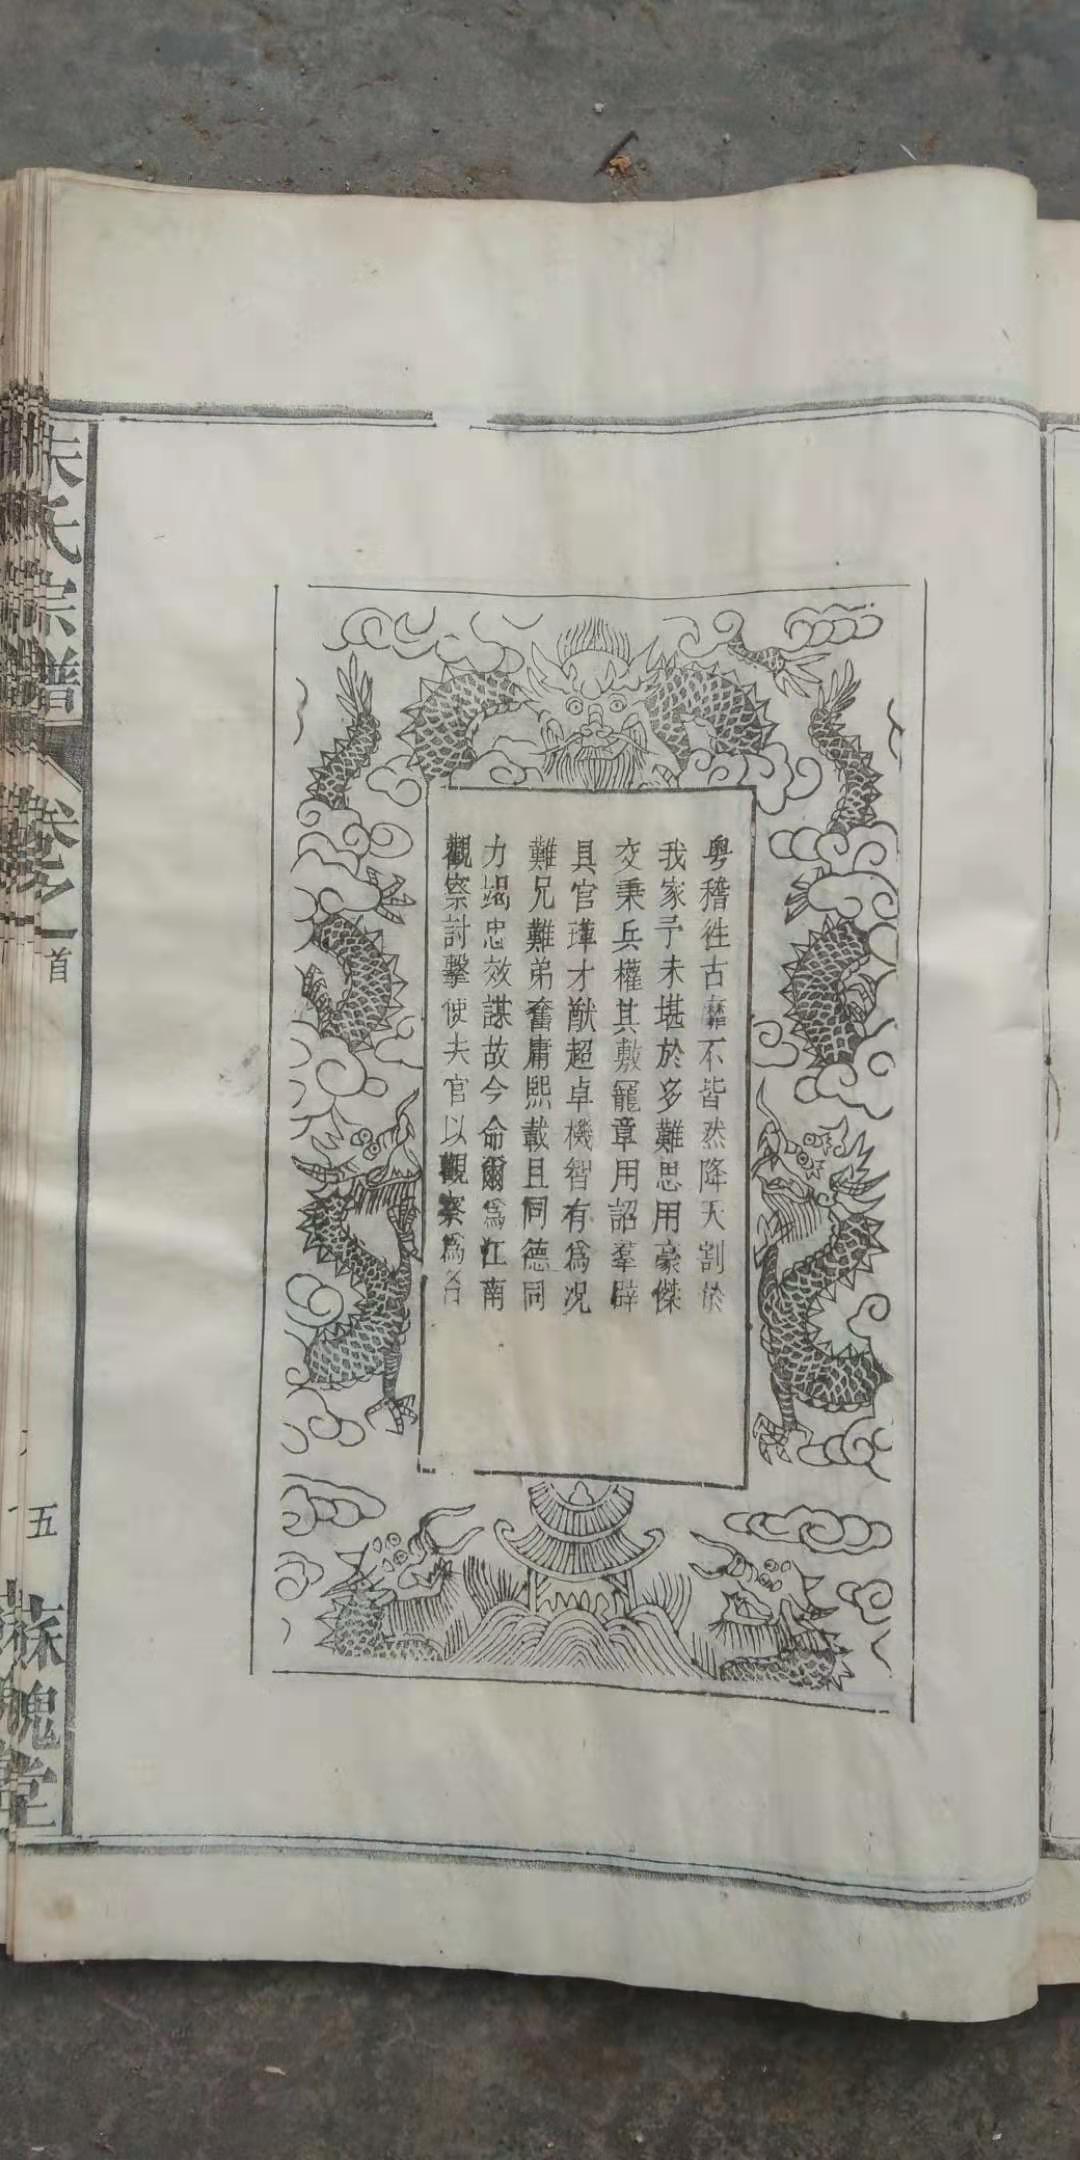 粵稽徃古靡不皆然降天割於
我家予未堪於多難思用豪傑
交秉兵權其敷寵章用詔羣辟
具官瑋才猷超卓機智有爲况
難兄難弟奮庸熙載且同德同
力竭忠效謀故今命爾爲江南
觀察討擊使夫官以觀察爲名
朱氏宗譜
卷之一
首
五
槐堂